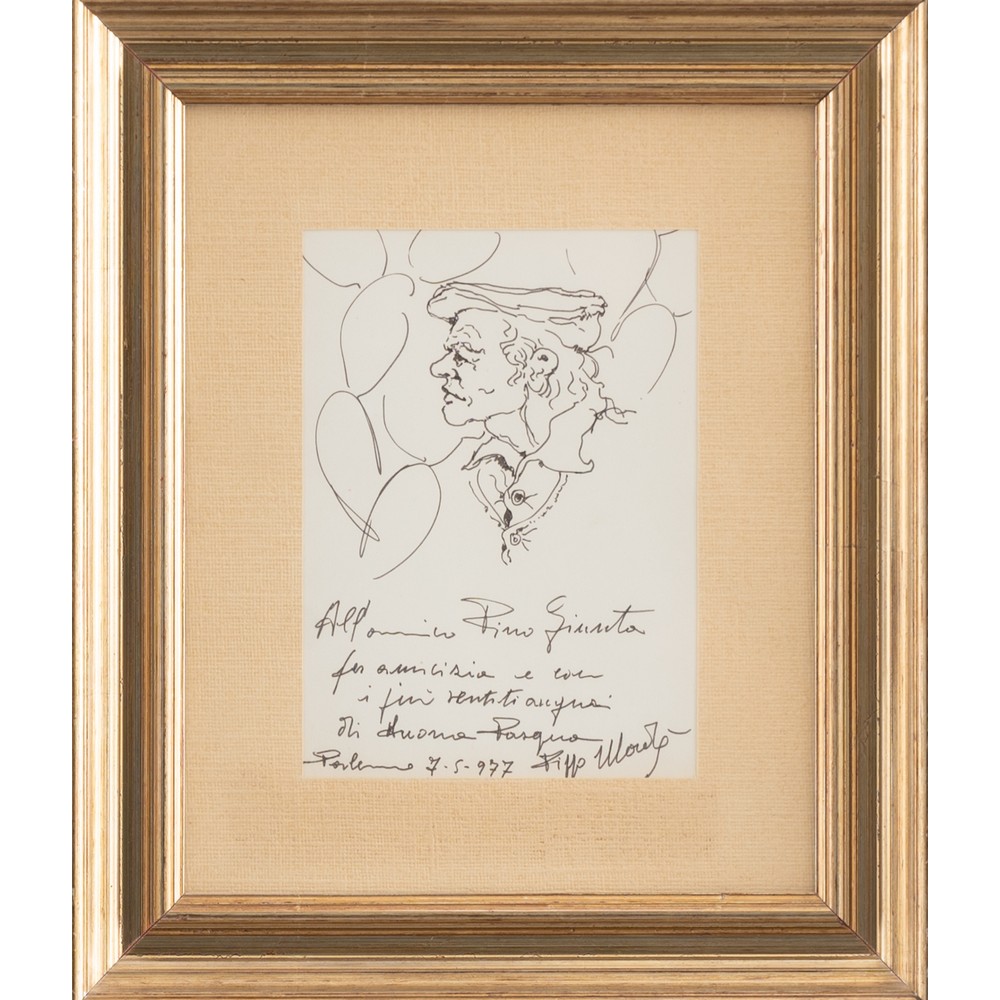 All'amico Pino Giunta
per amicizia e con
i più sentiti auguri
di Buona Pasqua
Palermo 7-5-977 Pippo